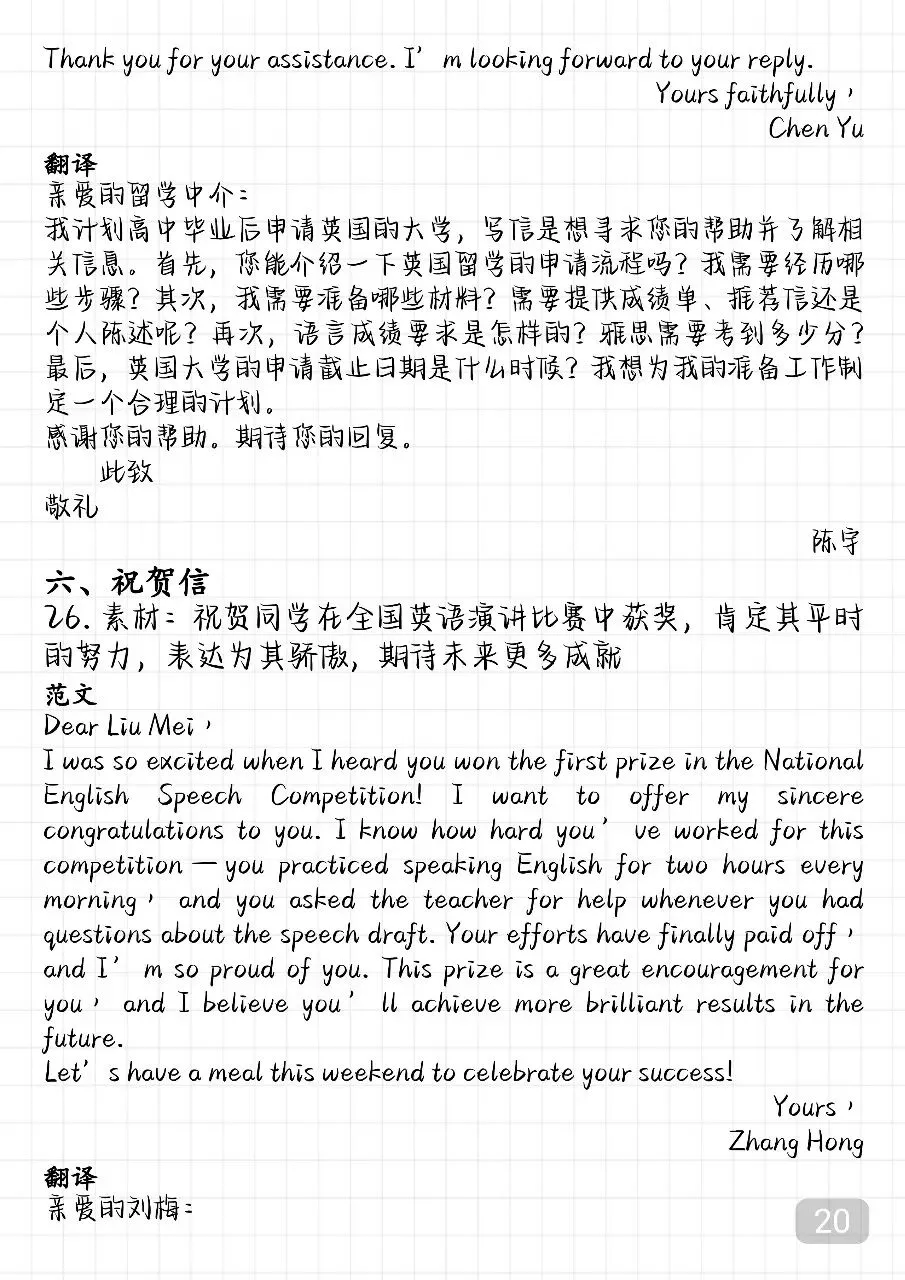 Thank you for your assistance. I’m looking forward to your reply.
Yours faithfully，
Chen Yu
翻译
亲爱的留学中介：
我计划高中毕业后申请英国的大学，写信是想寻求您的帮助并了解相
关信息。首先，您能介绍一下英国留学的申请流程吗？我需要经历哪
些步骤？其次，我需要准备哪些材料？需要提供成绩单、推荐信还是
个人陈述呢？再次，语言成绩要求是怎样的？雅思需要考到多少分？
最后，英国大学的申请截止日期是什么时候？我想为我的准备工作制
定一个合理的计划。
感谢您的帮助。期待您的回复。
此致
敬礼
陈宇
六、祝贺信
26. 素材：祝贺同学在全国英语演讲比赛中获奖，肯定其平时
的努力，表达为其骄傲，期待未来更多成就
范文
Dear Liu Mei，
I was so excited when I heard you won the first prize in the National
English Speech Competition! I want to offer my sincere
congratulations to you. I know how hard you’ve worked for this
competition — you practiced speaking English for two hours every
morning， and you asked the teacher for help whenever you had
questions about the speech draft. Your efforts have finally paid off，
and I’m so proud of you. This prize is a great encouragement for
you， and I believe you’ll achieve more brilliant results in the
future.
Let’s have a meal this weekend to celebrate your success!
Yours，
Zhang Hong
翻译
亲爱的刘梅：
20